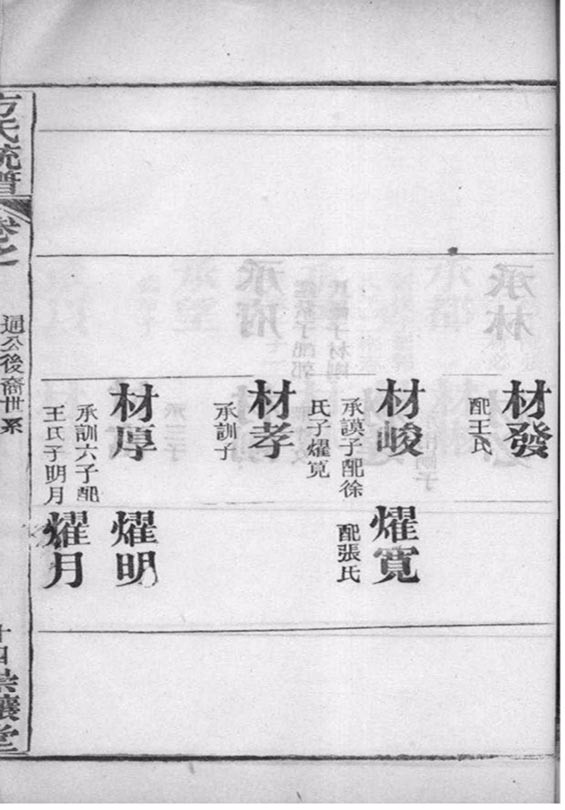 材發
配王氏
材峻
承謨子配徐
氏子燿寬
燿寬
配張氏
材孝
承訓子
材厚
承訓六子配
王氏子明月
燿明
燿月
方氏統譜
卷之
迵公後裔世系
十四